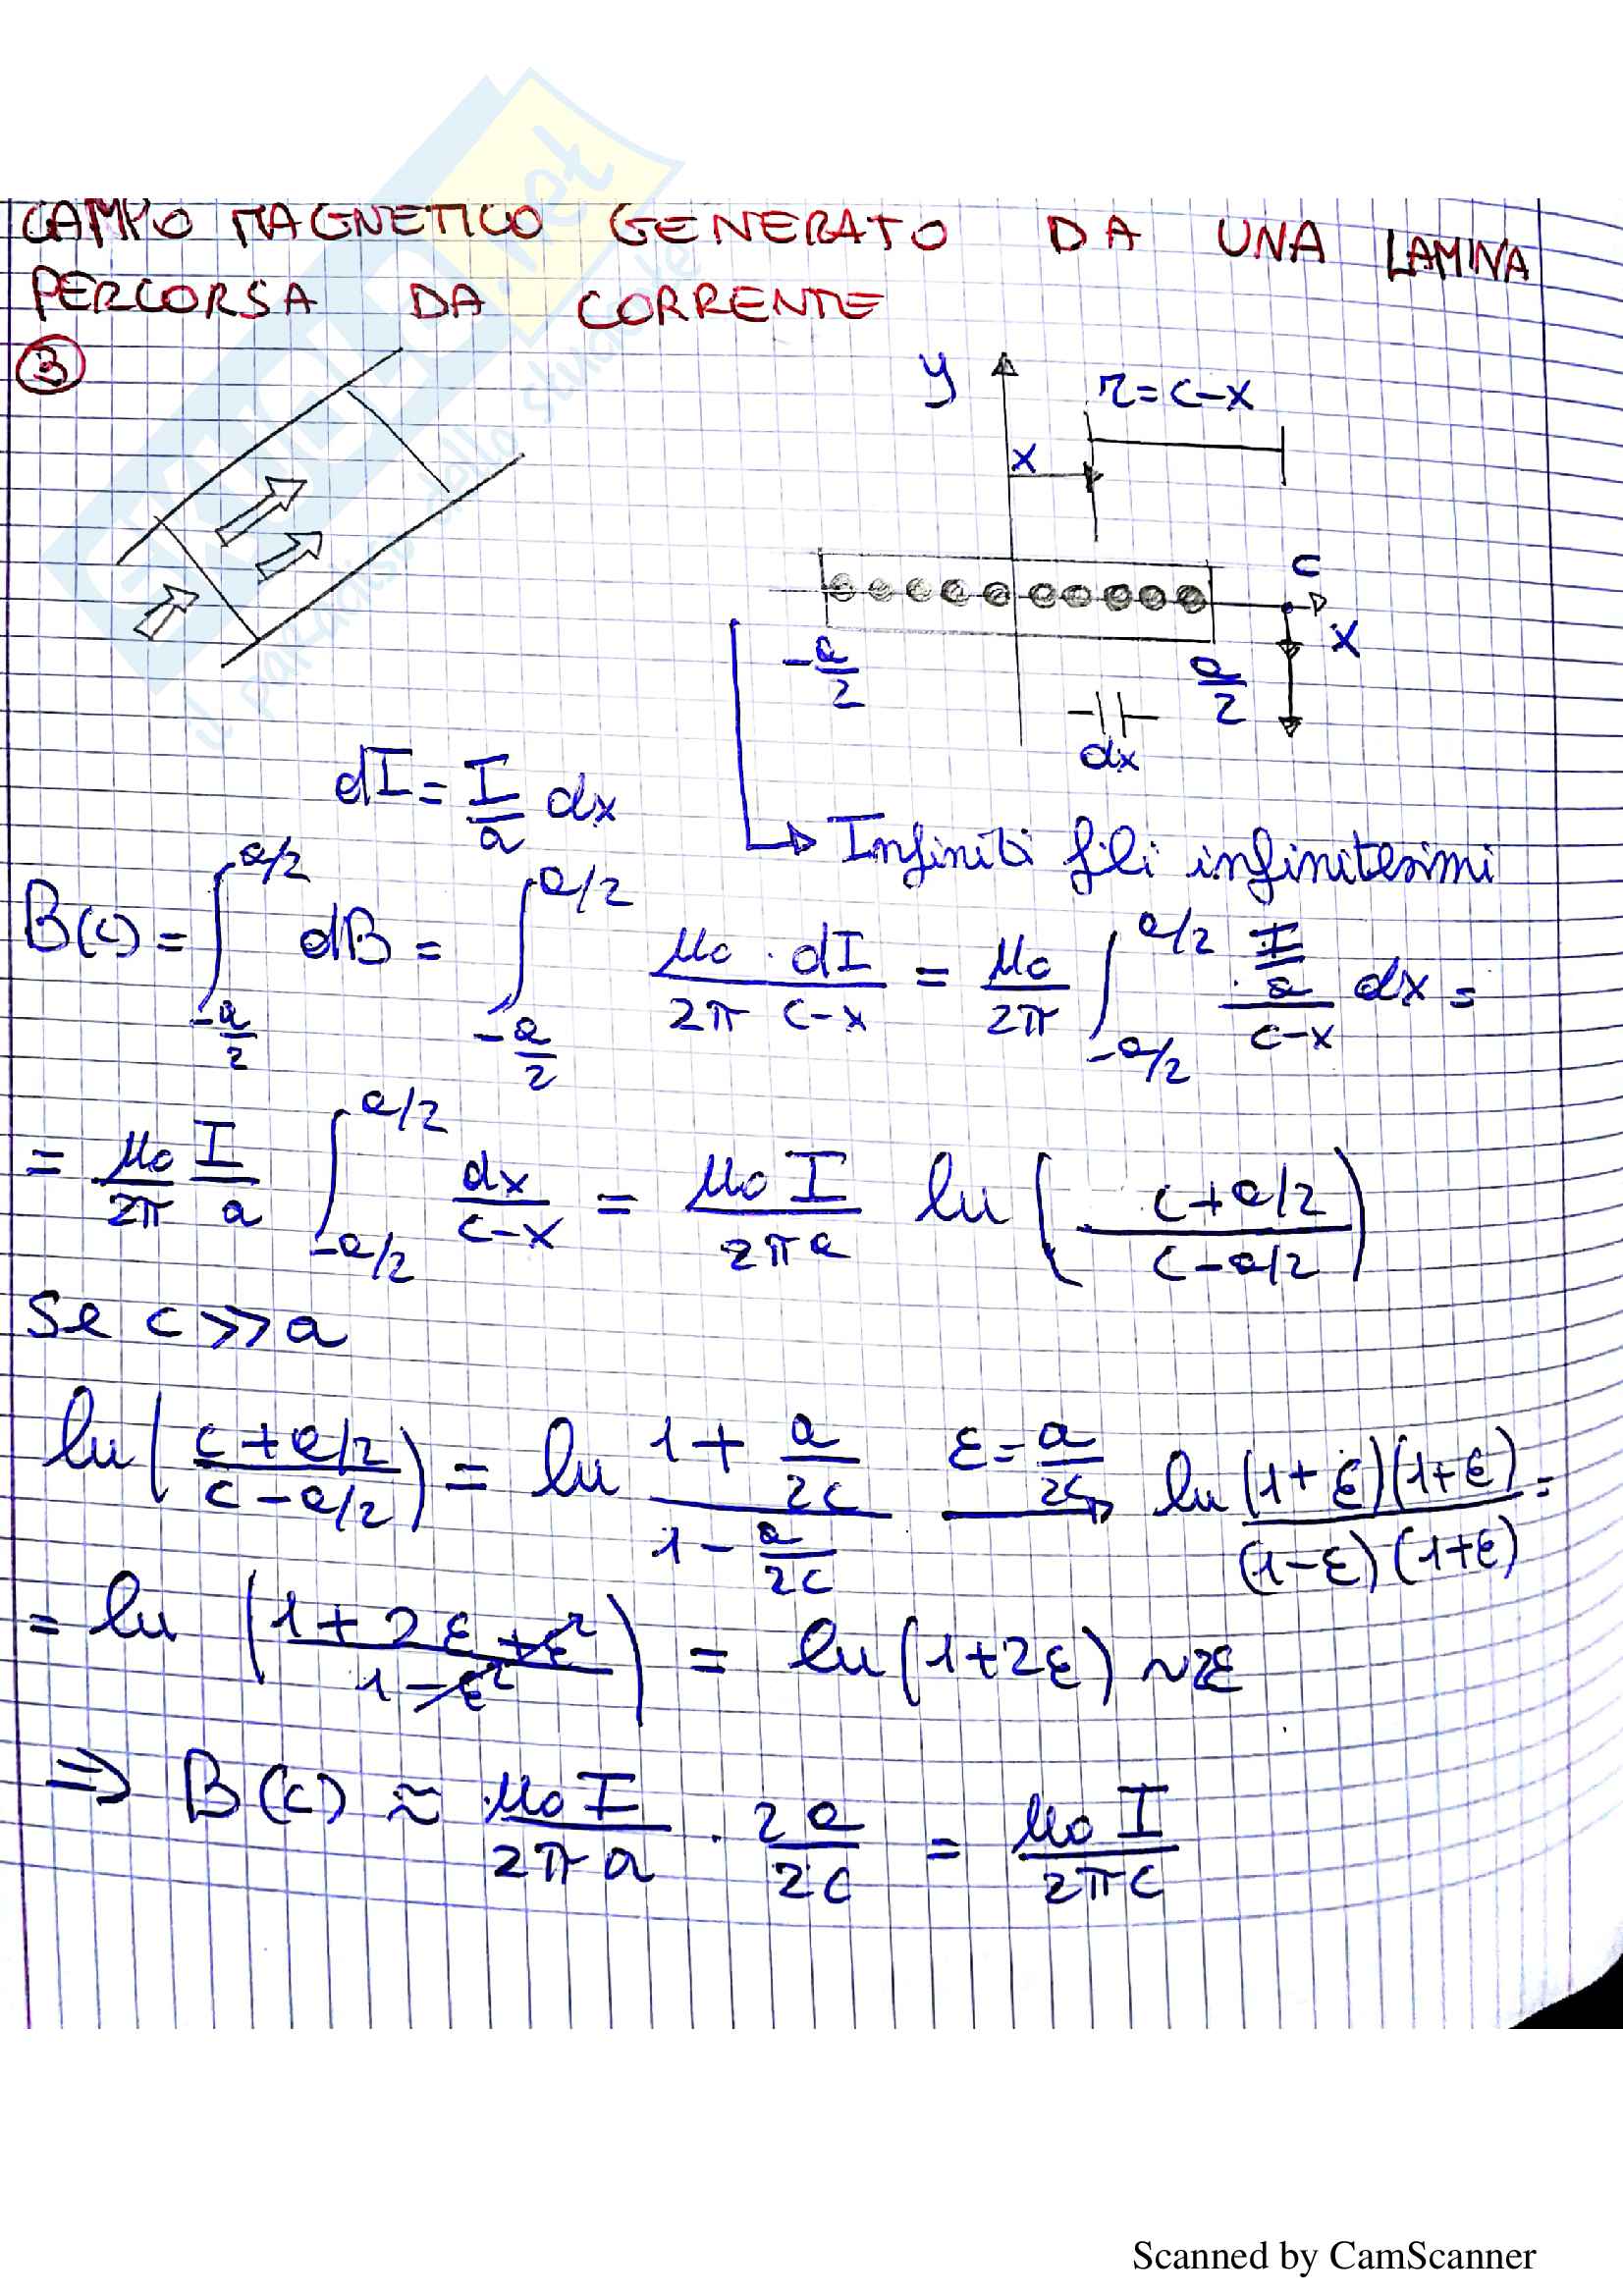 CAMPO MAGNETICO GENERATO DA UNA LAMINA
PERCORSA DA CORRENTE
3
y
r = c-x
x
c
x
-a/2
a/2
dx
dI = I/a dx
Infiniti fili infinitesimi
B(c) = ∫_{-a/2}^{a/2} dB = ∫_{-a/2}^{a/2} μ₀ · dI / 2π c-x = μ₀/2π ∫_{-a/2}^{a/2} (I/a)/(c-x) dx =
= μ₀/2π I/a ∫_{-a/2}^{a/2} dx/(c-x) = μ₀ I/2πa ln ( (c+a/2)/(c-a/2) )
Se c >> a
ln ( (c+a/2)/(c-a/2) ) = ln (1 + a/2c)/(1 - a/2c) ε = a/2c → ln (1+ε)(1+ε)/(1-ε)(1+ε) =
= ln ( (1+2ε+ε²)/(1-ε²) ) = ln (1+2ε) ~ 2ε
⇒ B(c) ≈ μ₀ I/2πa · 2a/2c = μ₀ I/2πc
SKUOLA.net
il paradiso dello studente
Scanned by CamScanner